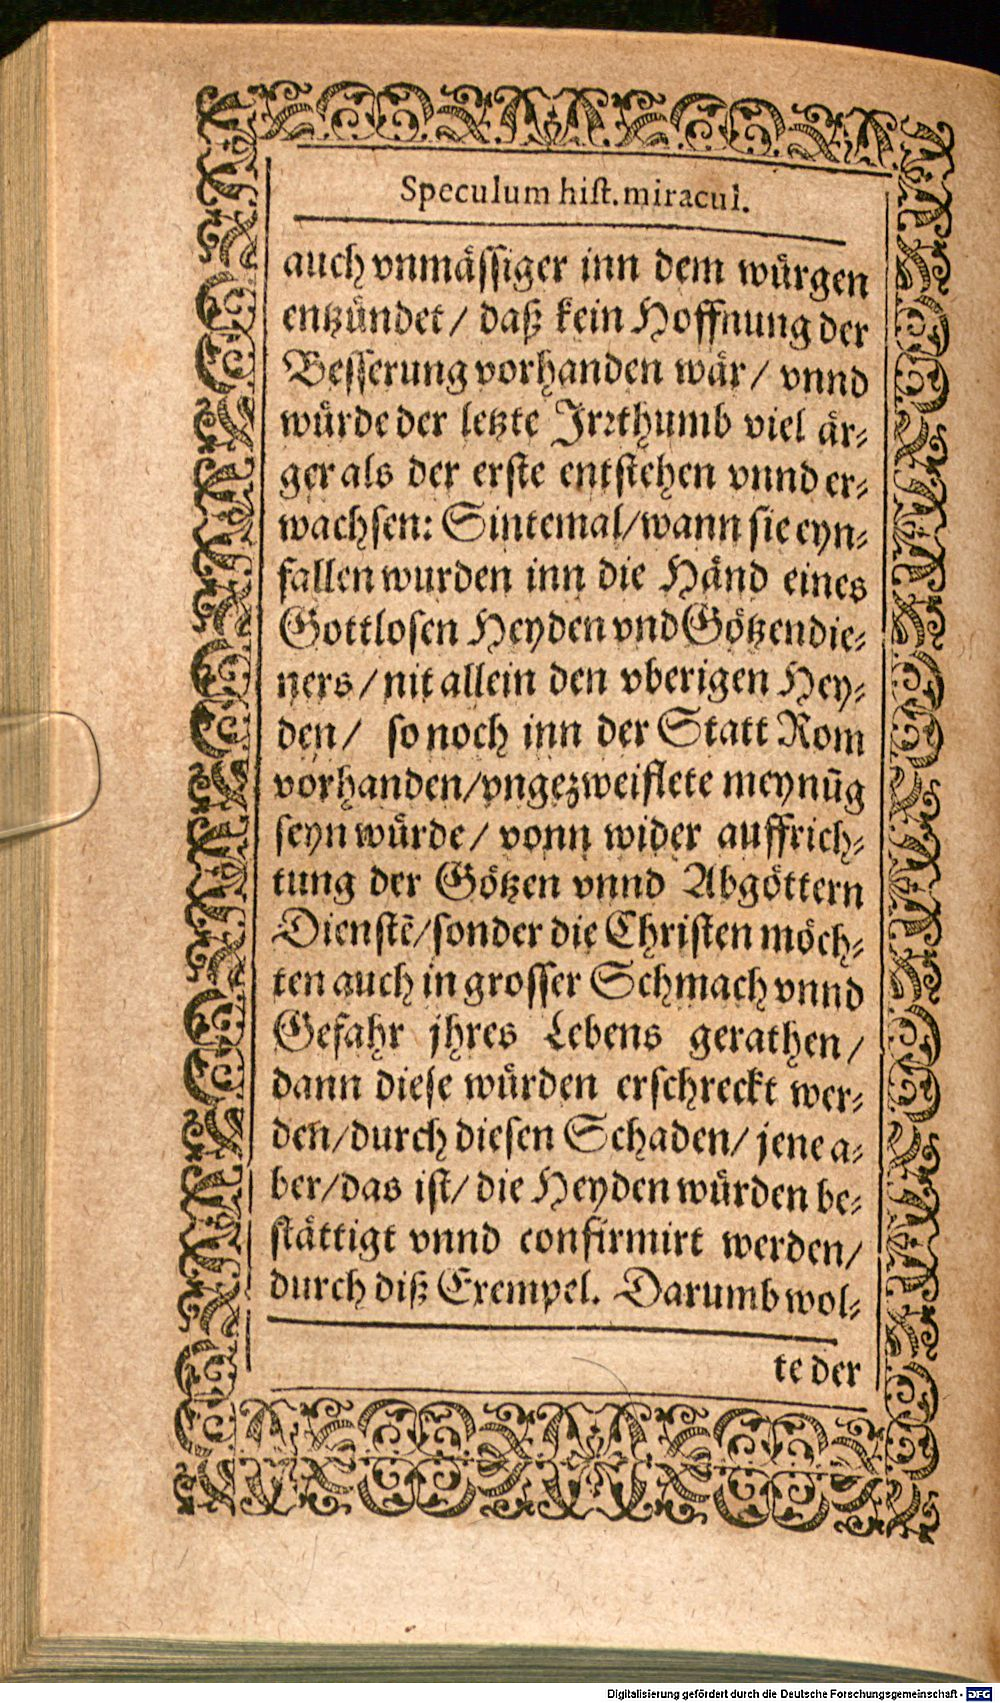 Speculum hist. miracul.
auch vnmässiger inn dem würgen
entzündet / daß kein Hoffnung der
Besserung vorhanden wär / vnnd
würde der letzte Jrꝛthumb viel är⸗
ger als der erste entstehen vnnd er⸗
wachsen: Sintemal / wann sie eyn⸗
fallen wurden inn die Händ eines
Gottlosen Heyden vnd Götzendie⸗
ners / nit allein den vberigen Hey⸗
den / so noch inn der Statt Rom
vorhanden / vngezweiflete meynūg
seyn würde / vonn wider auffrich⸗
tung der Götzen vnnd Abgöttern
Dienstē / sonder die Christen möch⸗
ten auch in grosser Schmach vnnd
Gefahr jhres Lebens gerathen /
dann diese würden erschreckt wer⸗
den / durch diesen Schaden / jene a⸗
ber / das ist / die Heyden würden be⸗
stättigt vnnd confirmirt werden /
durch diß Exempel. Darumb wol⸗
te der
Digitalisierung gefördert durch die Deutsche Forschungsgemeinschaft - DFG